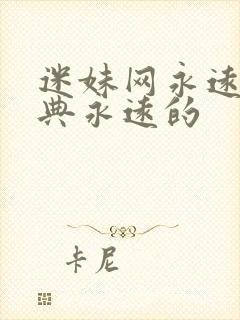 迷妹网永远
典永远的
卡尼